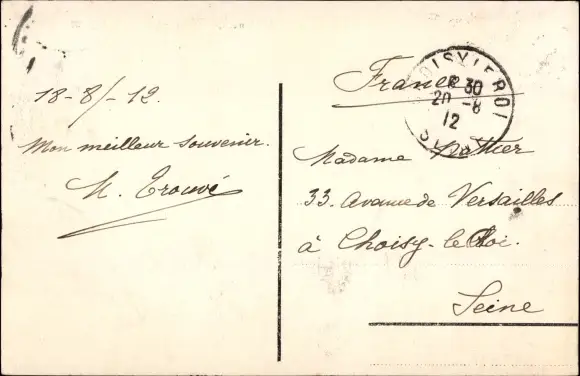 18-8/-12.
Mon meilleur souvenir.
France
CHOISY LE ROI
30
20 -8
12
SEINE
Madame
33. Avenue de Versailles
à Choisy-le-Roi.
Seine